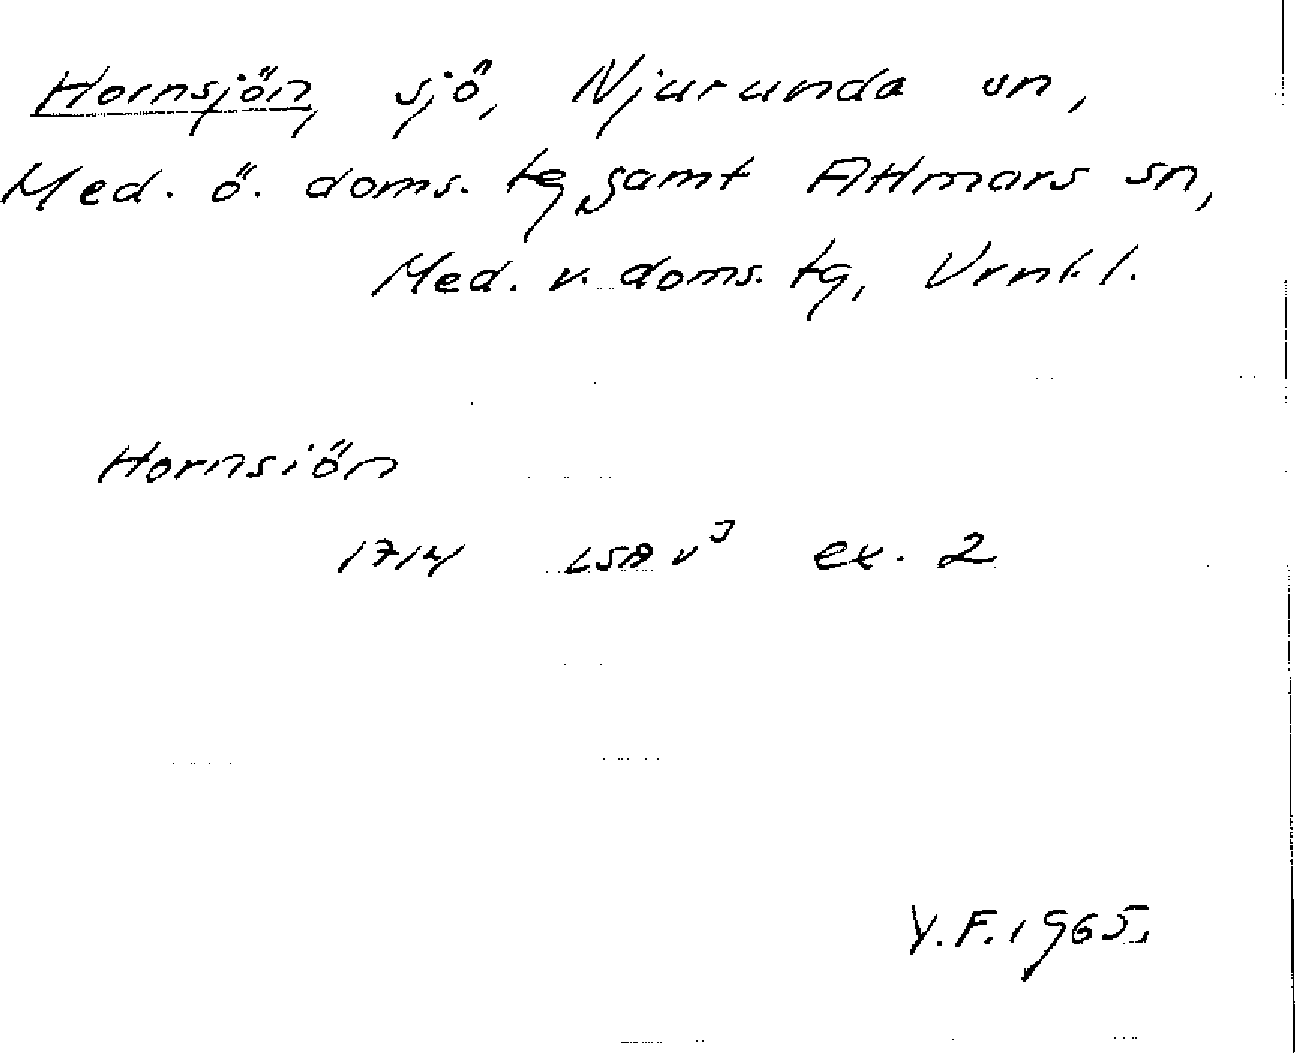 Hornsjön, sjö, Njurunda sn,
Med. ö. doms. tg, samt Attmars sn,
Med. v. doms. tg, Vrnl. l.
Hornsiön
1714 LSA v³ ex. 2
Y.F. 1965.